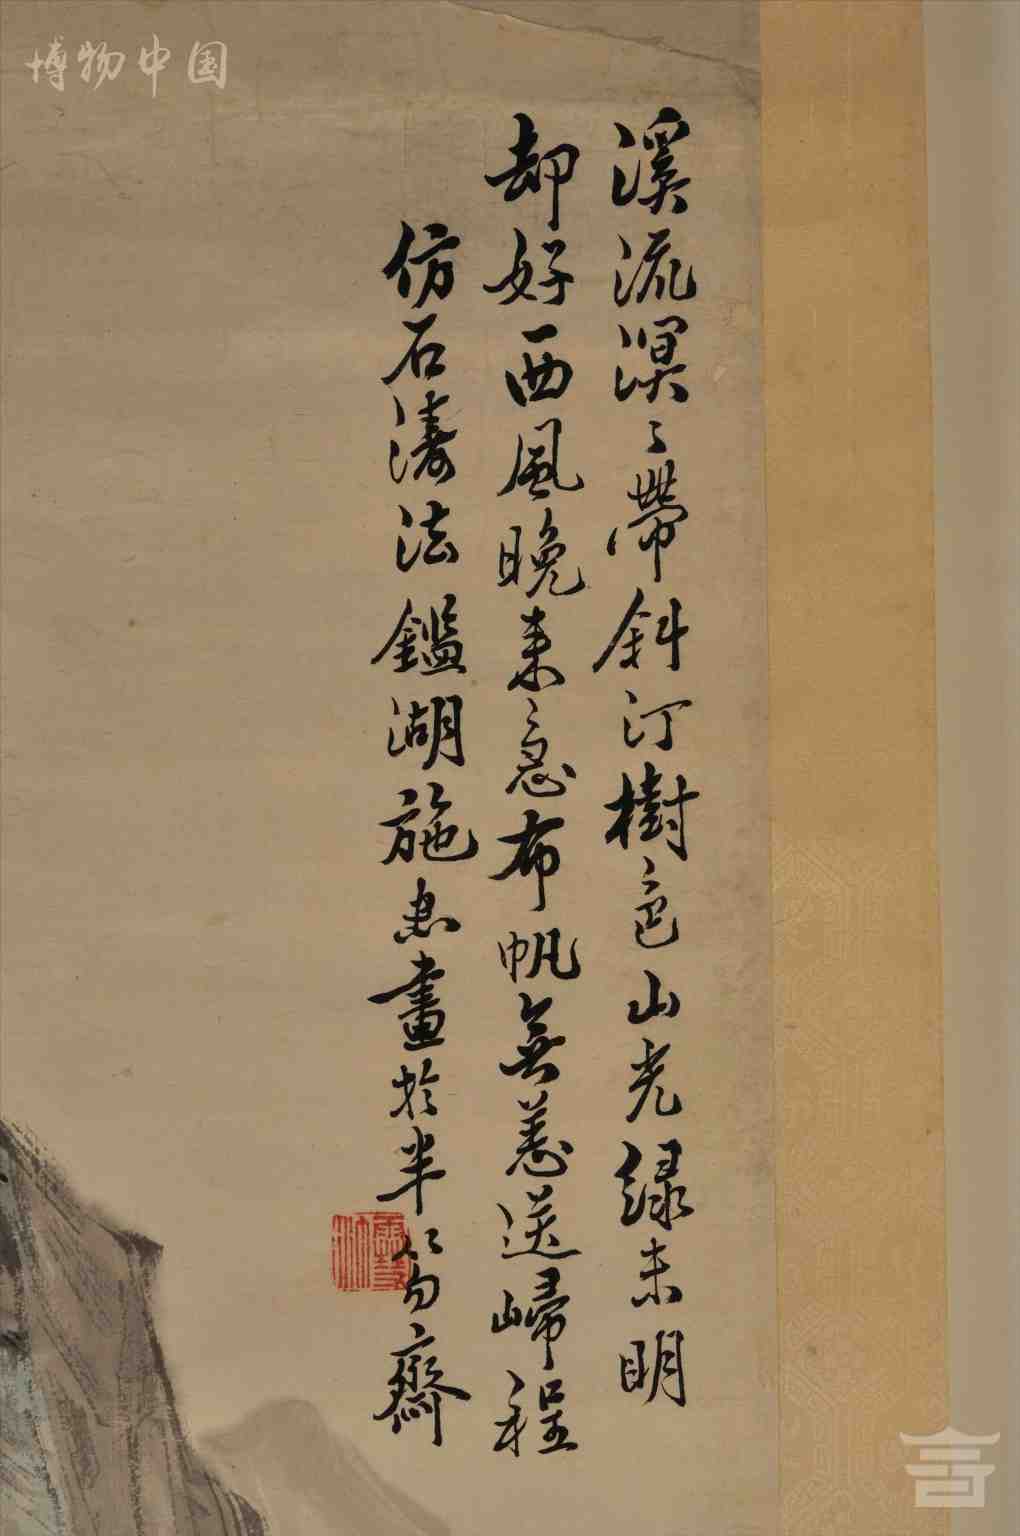 博物中国
溪流溟〻帶斜汀樹色山光綠未明
却好西風晚來急布帆無恙送歸程
仿石濤法鑑湖施畫於半齋